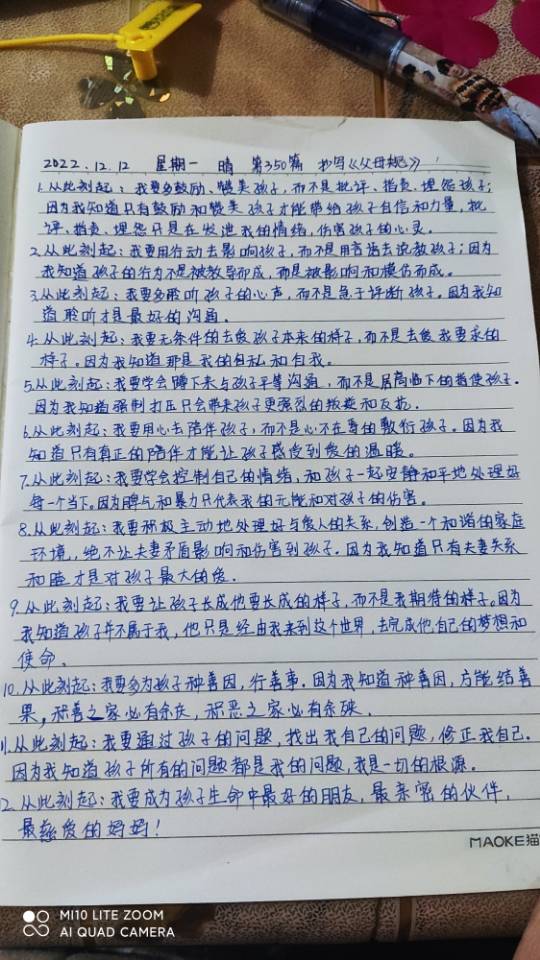 2022.12.12 星期一 晴 第350篇 抄写《父母规》
1.从此刻起：我要多鼓励、赞美孩子，而不是批评、指责、埋怨孩子；
因为我知道只有鼓励和赞美孩子才能带给孩子自信和力量，批
评、指责、埋怨只是在发泄我的情绪，伤害孩子的心灵。
2.从此刻起：我要用行动去影响孩子，而不是用言语去说教孩子；因为
我知道孩子的行为不是被教导而成，而是被影响和模仿而成。
3.从此刻起：我要多聆听孩子的心声，而不是急于评断孩子。因为我知
道聆听才是最好的沟通。
4.从此刻起：我要无条件的去爱孩子本来的样子，而不是去爱我要求的
样子。因为我知道那是我的自私和自我。
5.从此刻起：我要学会蹲下来与孩子平等沟通，而不是居高临下的指使孩子.
因为我知道强制打压只会带来孩子更强烈的叛逆和反抗.
6.从此刻起：我要用心去陪伴孩子，而不是心不在焉的敷衍孩子。因为我
知道只有真正的陪伴才能让孩子感受到爱的温暖。
7.从此刻起：我要学会控制自己的情绪，和孩子一起安静和平地处理好
每一个当下。因为脾气和暴力只代表我的无能和对孩子的伤害。
8.从此刻起：我要积极主动地处理好与爱人的关系，创造一个和谐的家庭
环境，绝不让夫妻矛盾影响和伤害到孩子.因为我知道只有夫妻关系
和睦才是对孩子最大的爱.
9.从此刻起：我要让孩子长成他要长成的样子，而不是我期待的样子。因为
我知道孩子并不属于我，他只是经由我来到这个世界，去完成他自己的梦想和
使命.
10.从此刻起：我要多为孩子种善因，行善事.因为我知道种善因，方能结善
果，积善之家必有余庆，积恶之家必有余殃.
11.从此刻起：我要通过孩子的问题，找出我自己的问题，修正我自己.
因为我知道孩子所有的问题都是我的问题，我是一切的根源.
12.从此刻起：我要成为孩子生命中最好的朋友，最亲密的伙伴，
最慈爱的妈妈！
MAOKE猫
MI10 LITE ZOOM
AI QUAD CAMERA